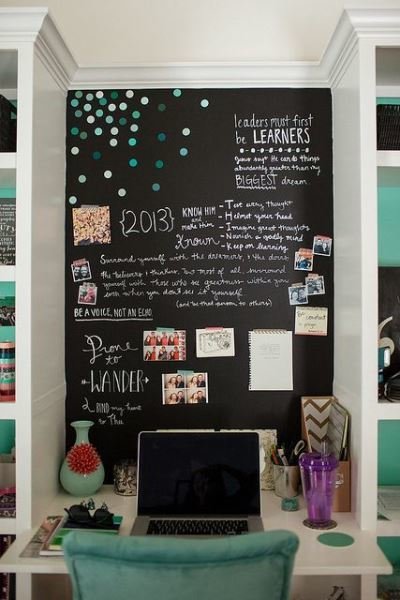 leaders must first
be LEARNERS
Jesus says He can do things
abundantly greater than my
BIGGEST dream.
{2013}
KNOW HIM and
make Him
Known
- Test every thought
- Helmet your head
- Imagine great thoughts
- Nourish a godly mind
- Keep on learning
Surround yourself with the dreamers, & the doers
the believers & thinkers, but most of all, surround
yourself with those who see greatness within you
even when you don't see it yourself.
(and be that person to others)
BE A VOICE, NOT AN ECHO.
Prone
to
WANDER
BIND my heart
to Thee
Be constant
prayer